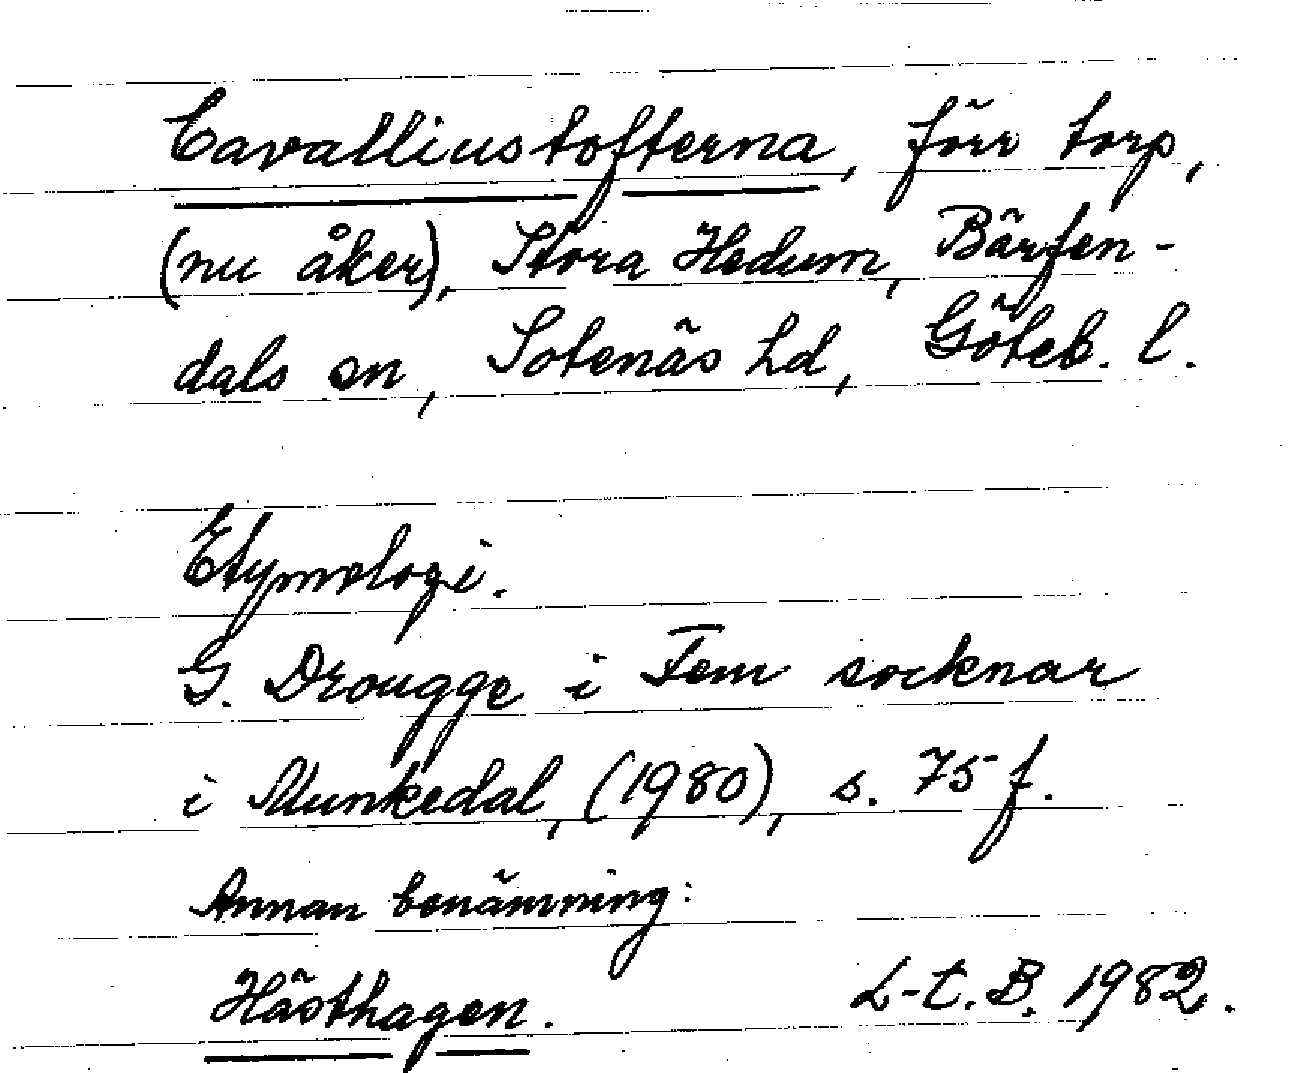 Cavalliustofterna, förr torp,
(nu åker), Stora Hedum, Bärfen-
dals sn, Sotenäs hd, Göteb. l.
Etymologi.
G. Drougge i Fem socknar
i Munkedal, (1980), s. 75 f.
Annan benämning:
Hästhagen. L-E. B. 1982.